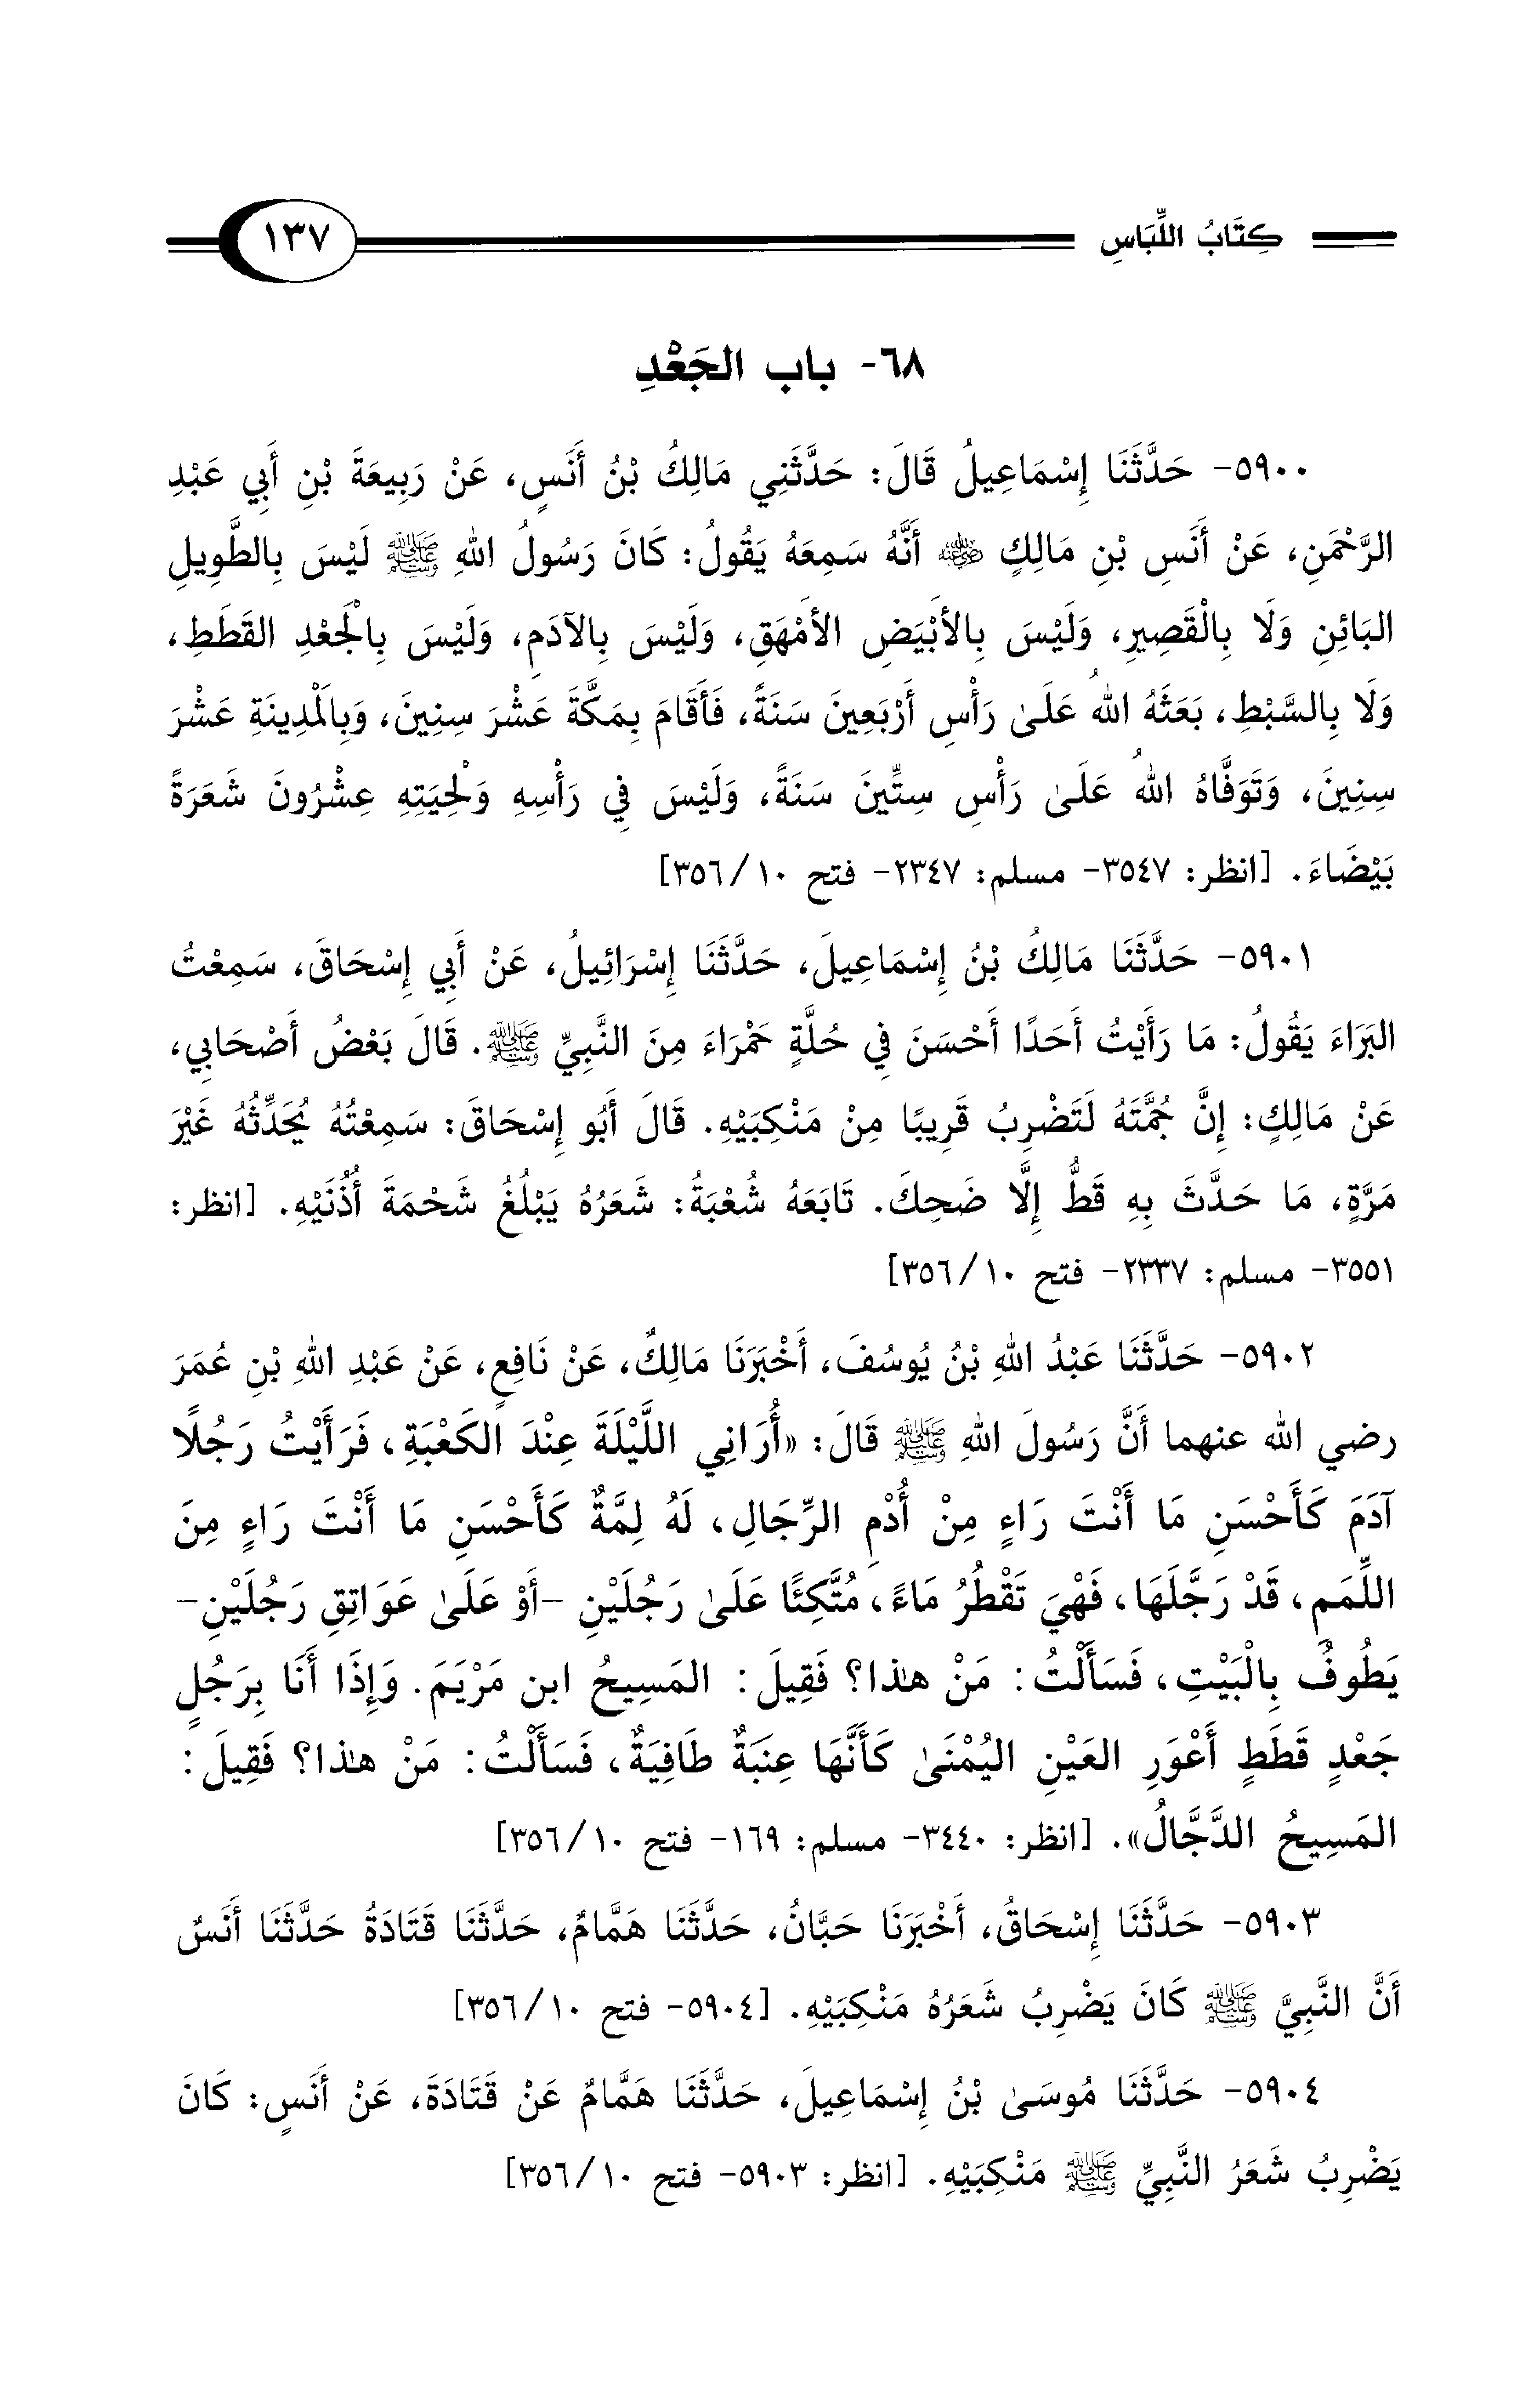 كِتَابُ اللِّبَاسِ ١٣٧
٦٨- باب الجَعْدِ
٥٩٠٠- حَدَّثَنَا إِسْمَاعِيلُ قَالَ: حَدَّثَنِي مَالِكُ بْنُ أَنَسٍ، عَنْ رَبِيعَةَ بْنِ أَبِي عَبْدِ
الرَّحْمَنِ، عَنْ أَنَسِ بْنِ مَالِكٍ ﵁ أَنَّهُ سَمِعَهُ يَقُولُ: كَانَ رَسُولُ اللهِ ﷺ لَيْسَ بِالطَّوِيلِ
البَائِنِ وَلَا بِالْقَصِيرِ، وَلَيْسَ بِالأَبْيَضِ الأَمْهَقِ، وَلَيْسَ بِالآدَمِ، وَلَيْسَ بِالْجَعْدِ القَطَطِ،
وَلَا بِالسَّبْطِ، بَعَثَهُ اللهُ عَلَىٰ رَأْسِ أَرْبَعِينَ سَنَةً، فَأَقَامَ بِمَكَّةَ عَشْرَ سِنِينَ، وَبِالْمَدِينَةِ عَشْرَ
سِنِينَ، وَتَوَفَّاهُ اللهُ عَلَىٰ رَأْسِ سِتِّينَ سَنَةً، وَلَيْسَ فِي رَأْسِهِ وَلْحِيَتِهِ عِشْرُونَ شَعَرَةً
بَيْضَاءَ. [انظر: ٣٥٤٧- مسلم: ٢٣٤٧- فتح ١٠/٣٥٦]
٥٩٠١- حَدَّثَنَا مَالِكُ بْنُ إِسْمَاعِيلَ، حَدَّثَنَا إِسْرَائِيلُ، عَنْ أَبِي إِسْحَاقَ، سَمِعْتُ
البَرَاءَ يَقُولُ: مَا رَأَيْتُ أَحَدًا أَحْسَنَ فِي حُلَّةٍ حَمْرَاءَ مِنَ النَّبِيِّ ﷺ. قَالَ بَعْضُ أَصْحَابِي،
عَنْ مَالِكٍ: إِنَّ جُمَّتَهُ لَتَضْرِبُ قَرِيبًا مِنْ مَنْكِبَيْهِ. قَالَ أَبُو إِسْحَاقَ: سَمِعْتُهُ يُحَدِّثُهُ غَيْرَ
مَرَّةٍ، مَا حَدَّثَ بِهِ قَطُّ إِلَّا ضَحِكَ. تَابَعَهُ شُعْبَةُ: شَعَرُهُ يَبْلُغُ شَحْمَةَ أُذُنَيْهِ. [انظر:
٣٥٥١- مسلم: ٢٣٣٧- فتح ١٠/٣٥٦]
٥٩٠٢- حَدَّثَنَا عَبْدُ اللهِ بْنُ يُوسُفَ، أَخْبَرَنَا مَالِكٌ، عَنْ نَافِعٍ، عَنْ عَبْدِ اللهِ بْنِ عُمَرَ
رضي الله عنهما أَنَّ رَسُولَ اللهِ ﷺ قَالَ: «أُرَانِي اللَّيْلَةَ عِنْدَ الكَعْبَةِ، فَرَأَيْتُ رَجُلًا
آدَمَ كَأَحْسَنِ مَا أَنْتَ رَاءٍ مِنْ أُدْمِ الرِّجَالِ، لَهُ لِمَّةٌ كَأَحْسَنِ مَا أَنْتَ رَاءٍ مِنَ
اللِّمَمِ، قَدْ رَجَّلَهَا، فَهْيَ تَقْطُرُ مَاءً، مُتَّكِئًا عَلَىٰ رَجُلَيْنِ -أَوْ عَلَىٰ عَوَاتِقِ رَجُلَيْنِ-
يَطُوفُ بِالْبَيْتِ، فَسَأَلْتُ: مَنْ هٰذا؟ فَقِيلَ: المَسِيحُ ابن مَرْيَمَ. وَإِذَا أَنَا بِرَجُلٍ
جَعْدٍ قَطَطٍ أَعْوَرِ العَيْنِ اليُمْنَىٰ كَأَنَّهَا عِنَبَةٌ طَافِيَةٌ، فَسَأَلْتُ: مَنْ هٰذا؟ فَقِيلَ:
المَسِيحُ الدَّجَّالُ». [انظر: ٣٤٤٠- مسلم: ١٦٩- فتح ١٠/٣٥٦]
٥٩٠٣- حَدَّثَنَا إِسْحَاقُ، أَخْبَرَنَا حَبَّانُ، حَدَّثَنَا هَمَّامٌ، حَدَّثَنَا قَتَادَةُ حَدَّثَنَا أَنَسٌ
أَنَّ النَّبِيَّ ﷺ كَانَ يَضْرِبُ شَعَرُهُ مَنْكِبَيْهِ. [٥٩٠٤- فتح ١٠/٣٥٦]
٥٩٠٤- حَدَّثَنَا مُوسَىٰ بْنُ إِسْمَاعِيلَ، حَدَّثَنَا هَمَّامٌ عَنْ قَتَادَةَ، عَنْ أَنَسٍ: كَانَ
يَضْرِبُ شَعَرُ النَّبِيِّ ﷺ مَنْكِبَيْهِ. [انظر: ٥٩٠٣- فتح ١٠/٣٥٦]